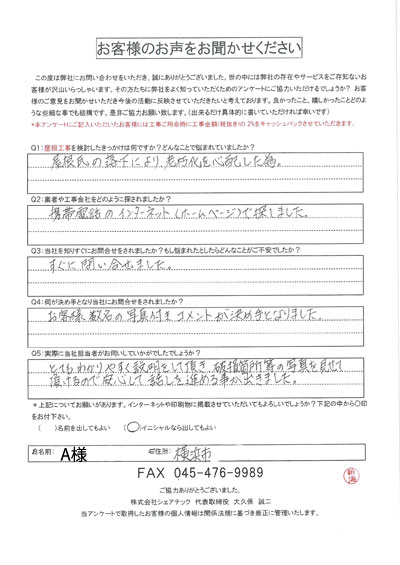 お客様のお声をお聞かせください
この度は弊社にお問い合わせをいただき、誠にありがとうございました。世の中には弊社の存在やサービスをご存知ないお
客様が沢山いらっしゃいます。その方たちに弊社をよく知っていただくためのアンケートにご協力いただけるでしょうか？ お客
様のご意見をお聞かせいただき今後の活動に反映させていただきたいと考えております。良かったこと、嬉しかったことどのよ
うな些細な事でも結構です。是非ご協力お願い致します。(出来るだけ具体的に書いていただければ幸いです)
*本アンケートにご記入いただいたお客様には工事ご用命時に工事金額(税抜き)の2%をキャッシュバックさせていただきます。
Q1:屋根工事を検討したきっかけは何ですか？どんなことで悩まれていましたか？
屋根瓦の落下により、老朽化を心配した為。
Q2:業者や工事会社をどのように探されましたか？
携帯電話のインターネット(ホームページ)で探しました。
Q3:当社を知りすぐにお問合せをされましたか？もし悩まれたとしたらどんなことがご不安でしたか？
すぐに問い合せました。
Q4:何が決め手となり当社にお問合せをされましたか？
お客様数名の写真付きコメントが決め手となりました。
Q5:実際に当社担当者がお伺いしていかがでしたでしょうか？
とてもわかりやすく説明をして頂き、破損箇所等の写真を見せて
頂けるので安心して話しを進める事が出きました。
*上記についてお願いがあります。インターネットや印刷物に掲載させていただいてもよろしいでしょうか？下記の中から○印
をお付け下さい。
( )名前を出してもよい (○)イニシャルなら出してもよい
お名前: A様 ご住所: 横浜市
FAX 045-476-9989
ご協力ありがとうございました。
株式会社シェアテック 代表取締役 大久保 誠二
当アンケートで取得したお客様の個人情報は関係法規に基づき厳正に管理いたします。